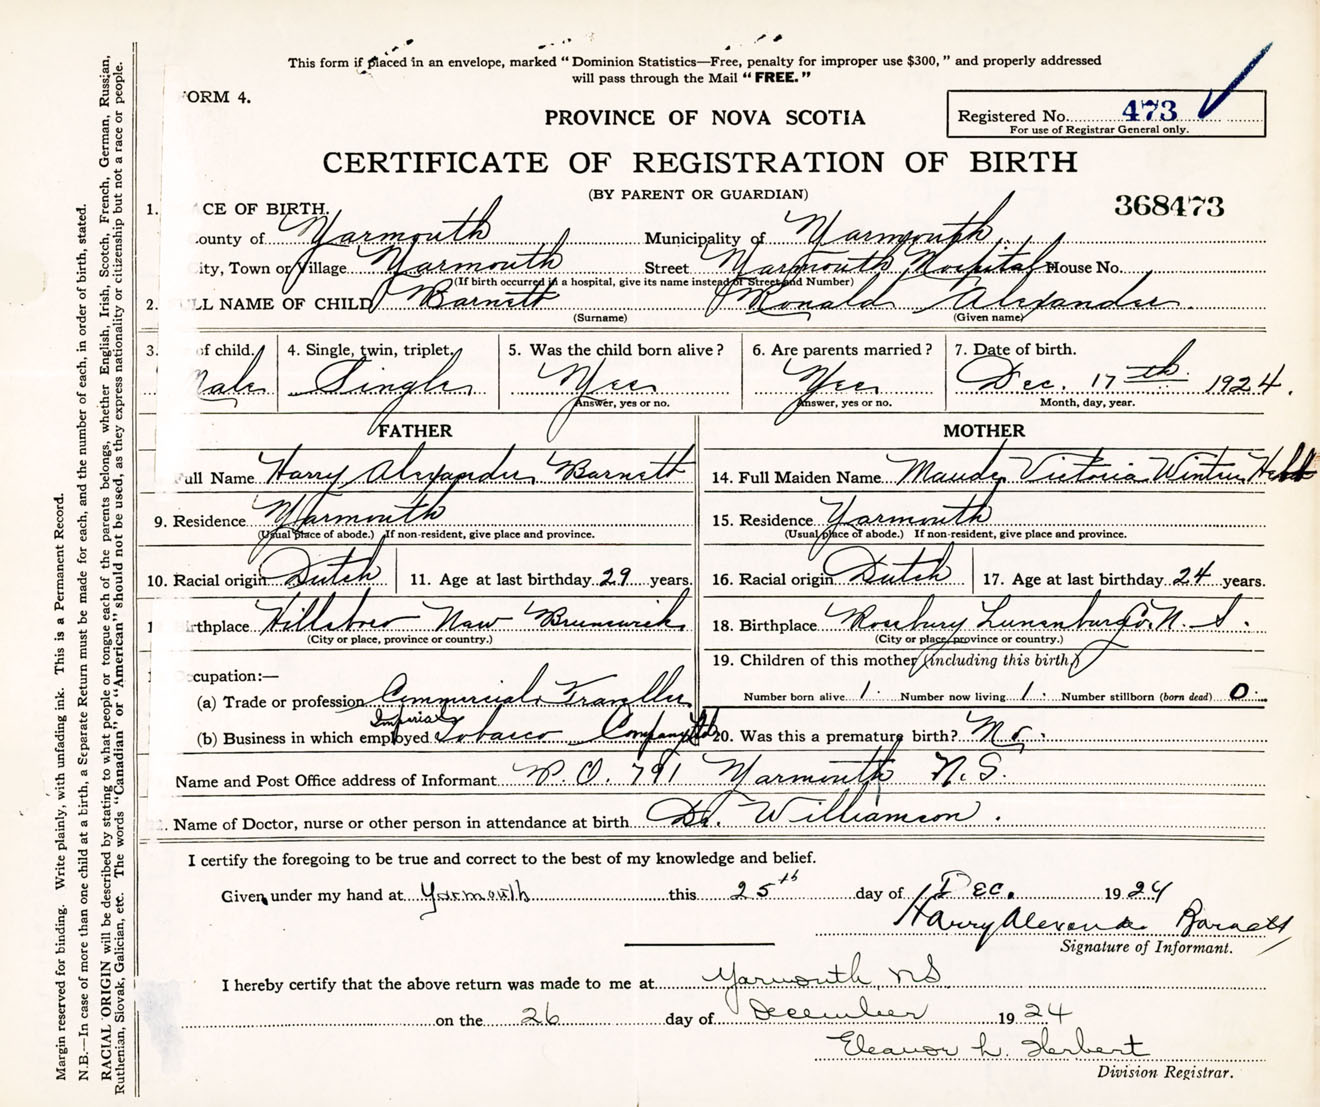 This form if placed in an envelope, marked "Dominion Statistics—Free, penalty for improper use $300," and properly addressed
will pass through the Mail "FREE."
ORM 4.
PROVINCE OF NOVA SCOTIA
Registered No. 473
For use of Registrar General only.
CERTIFICATE OF REGISTRATION OF BIRTH
(BY PARENT OR GUARDIAN)
368473
1. CE OF BIRTH.
ounty of Yarmouth Municipality of Yarmouth
City, Town or Village Yarmouth Street Yarmouth Hospital House No.
(If birth occurred in a hospital, give its name instead of Street and Number)
2. LL NAME OF CHILD Barnett Ronald Alexander
(Surname) (Given name)
3. of child. 4. Single, twin, triplet. 5. Was the child born alive? 6. Are parents married? 7. Date of birth.
Male Single Yes Yes Dec. 17th 1924.
Answer, yes or no. Answer, yes or no. Month, day, year.
FATHER MOTHER
ull Name Harry Alexander Barnett 14. Full Maiden Name Maude Victoria Winters Hebb
9. Residence Yarmouth 15. Residence Yarmouth
(Usual place of abode.) If non-resident, give place and province. (Usual place of abode.) If non-resident, give place and province.
10. Racial origin Dutch 11. Age at last birthday 29 years. 16. Racial origin Dutch 17. Age at last birthday 24 years.
1 rthplace Hillsboro New Brunswick 18. Birthplace Rosebury Lunenburg Co. N. S.
(City or place, province or country.) (City or place, province or country.)
1 ccupation:— 19. Children of this mother (including this birth)
(a) Trade or profession Commercial Traveller Number born alive 1. Number now living 1. Number stillborn (born dead) 0
(b) Business in which employed Imperial Tobacco Company Ltd 20. Was this a premature birth? No.
Name and Post Office address of Informant P.O. 791 Yarmouth N.S.
. Name of Doctor, nurse or other person in attendance at birth Dr. Williamson.
I certify the foregoing to be true and correct to the best of my knowledge and belief.
Given under my hand at Yarmouth this 25th day of Dec. 1924
Harry Alexander Barnett
Signature of Informant.
I hereby certify that the above return was made to me at Yarmouth, NS
on the 26 day of December 1924
Eleanor L. Herbert
Division Registrar.
Margin reserved for binding. Write plainly, with unfading ink. This is a Permanent Record.
N.B.—In case of more than one child at a birth, a Separate Return must be made for each, and the number of each, in order of birth, stated.
RACIAL ORIGIN will be described by stating to what people or tongue each of the parents belongs, whether English, Irish, Scotch, French, German, Russian,
Ruthenian, Slovak, Galician, etc. The words "Canadian" or "American" should not be used, as they express nationality or citizenship but not a race or people.